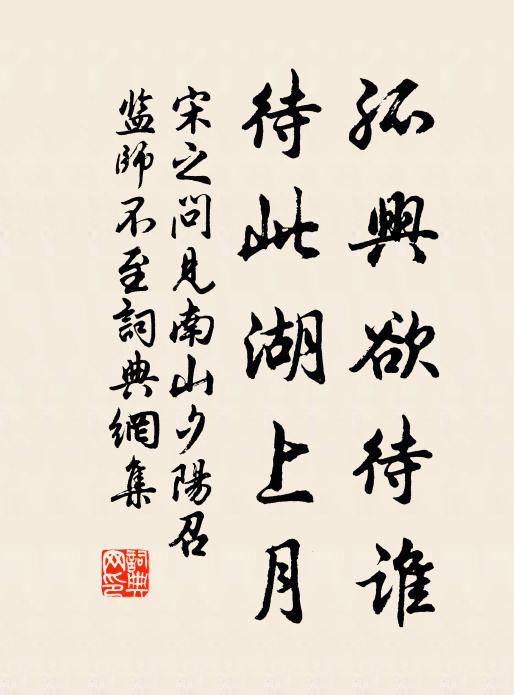 孤興欲待誰
待此湖上月
宋之問見南山夕陽召
监師不至詞典網集
詞典
网印